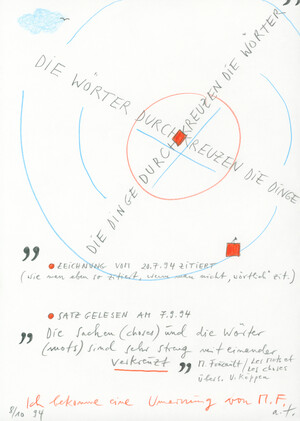 DIE WÖRTER DURCHKREUZEN DIE DINGE
DIE DINGE DURCHKREUZEN DIE WÖRTER
"
ZEICHNUNG VOM 20.7.94 ZITIERT
(wie man eben so zitiert, wenn man nicht „wörtlich" zit.)
SATZ GELESEN AM 7.9.94
" Die Sachen (choses) und die Wörter
(mots) sind sehr streng miteinander
verkreuzt " M. Foucault / Les mots et
les choses
übers. U. Köppen
Ich bekomme eine Umarmung von M.F.
8/10 94